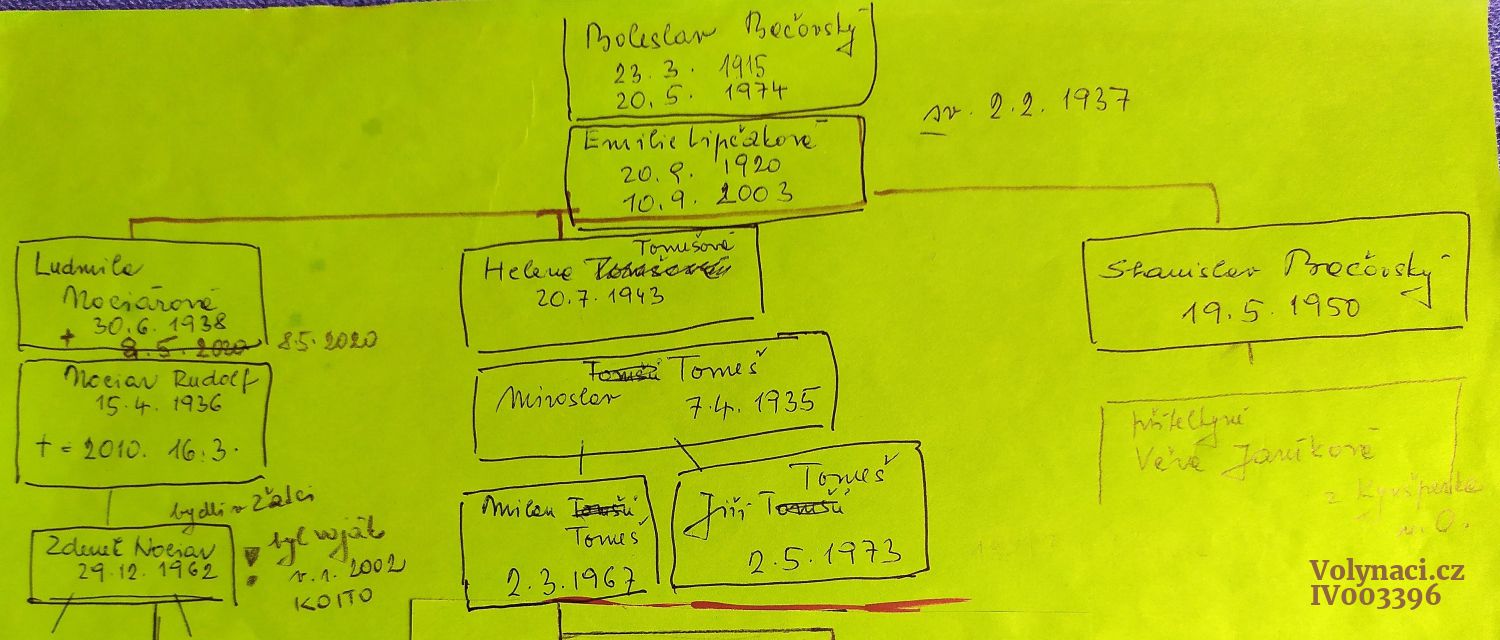 Boleslav Bočovský
23. 3. 1915
20. 5. 1974
sv. 2. 2. 1937
Emilie Lipčáková
20. 9. 1920
10. 9. 2003
Ludmila
Mociárová
30. 6. 1938
+ 8. 5. 2020 8.5.2020
Mociar Rudolf
15. 4. 1936
+ = 2010. 16.3.
bydlí v Žatci
Zdeněk Mociar
29. 12. 1962
byl voják
v. 1. 2002
KOITO
Tomešová
Helena
20. 7. 1943
Tomšů Tomeš
Miroslav 7.4. 1935
Milan Tomšů
Tomeš
2. 3. 1967
Tomeš
Jiří Tomšů
2. 5. 1973
Stanislav Bočovský
19. 5. 1950
přítelkyně
Věra Janíková
z Kynšperka
n. O.
Volynaci.cz
IV003396